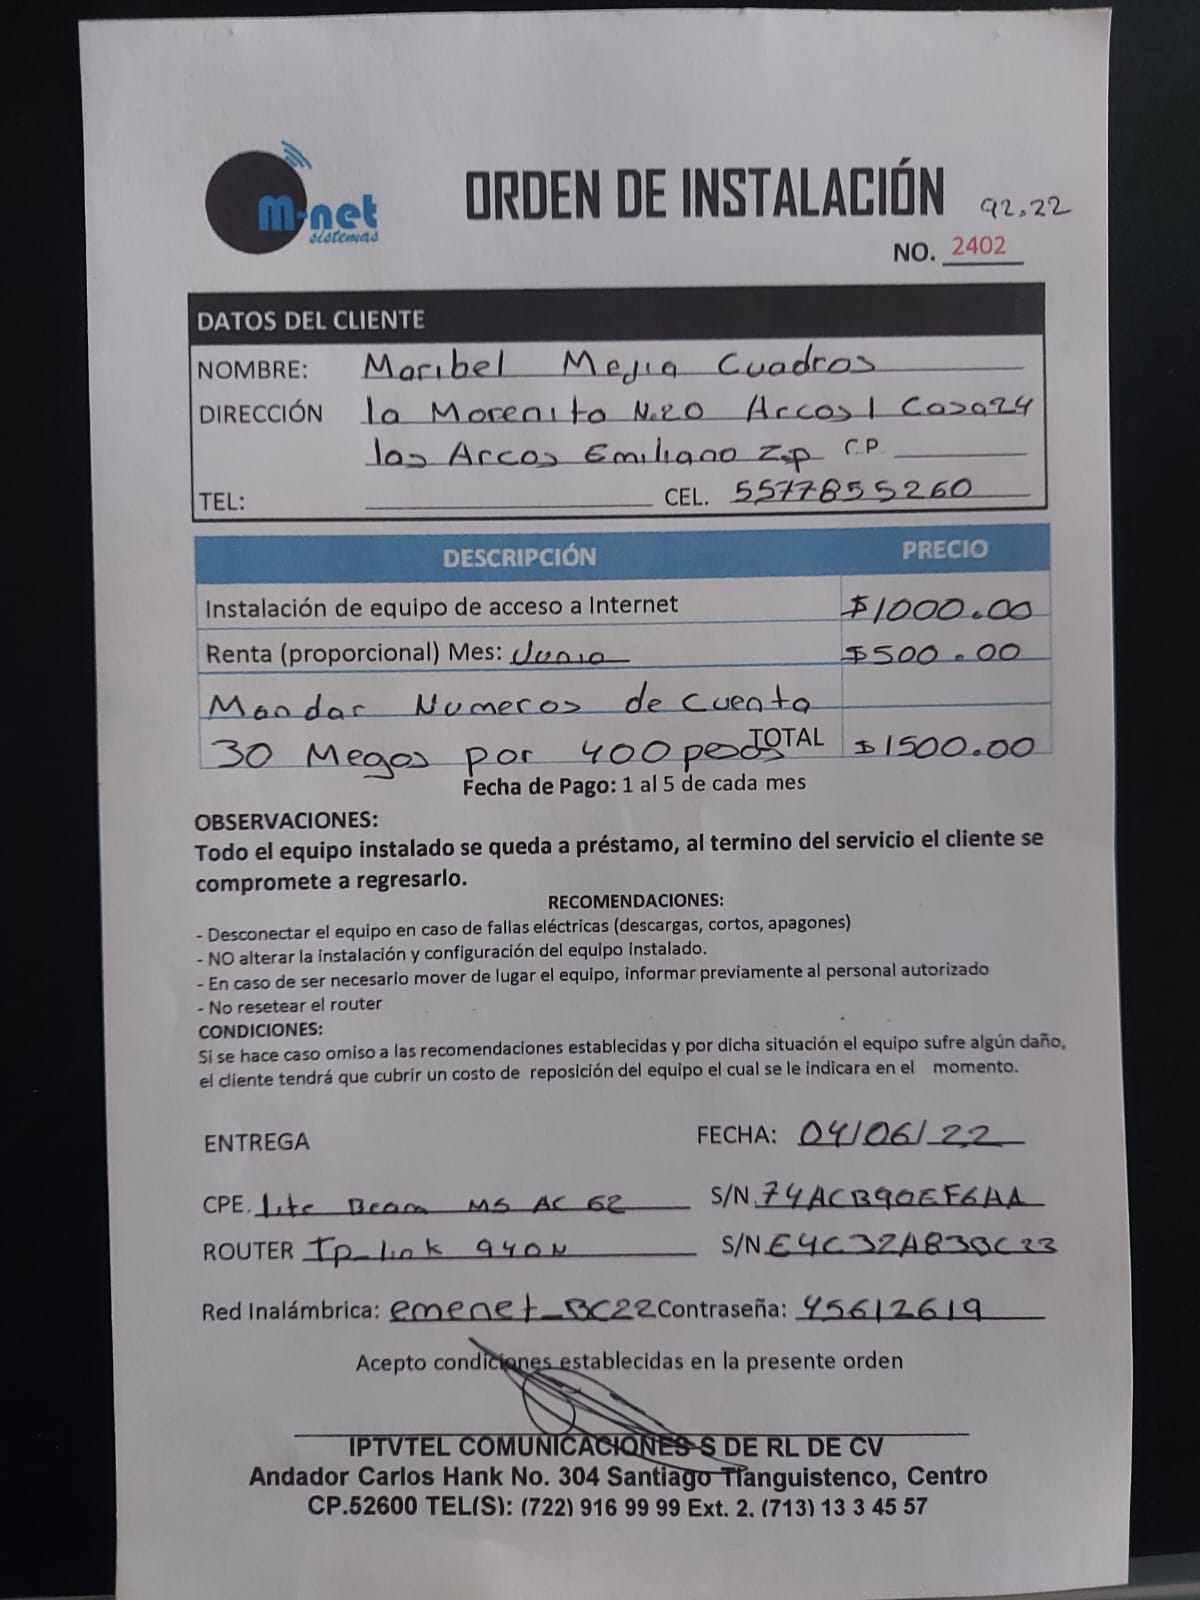 M-net
sistemas
ORDEN DE INSTALACIÓN 92.22
NO. 2402
DATOS DEL CLIENTE
NOMBRE: Maribel Mejia Cuadros
DIRECCIÓN la Morenita No.20 Arcos 1 Casa24
las Arcos Emiliano Zap C.P.
TEL: CEL. 5577855260
DESCRIPCIÓN PRECIO
Instalación de equipo de acceso a Internet $1000.00
Renta (proporcional) Mes: Junio $500.00
Mandar Numeros de cuenta
30 Megas por 400 pesos TOTAL $1500.00
Fecha de Pago: 1 al 5 de cada mes
OBSERVACIONES:
Todo el equipo instalado se queda a préstamo, al termino del servicio el cliente se
compromete a regresarlo.
RECOMENDACIONES:
- Desconectar el equipo en caso de fallas eléctricas (descargas, cortos, apagones)
- NO alterar la instalación y configuración del equipo instalado.
- En caso de ser necesario mover de lugar el equipo, informar previamente al personal autorizado
- No resetear el router
CONDICIONES:
Si se hace caso omiso a las recomendaciones establecidas y por dicha situación el equipo sufre algún daño,
el cliente tendrá que cubrir un costo de reposición del equipo el cual se le indicara en el momento.
ENTREGA FECHA: 04/06/22
CPE. lite Beam M5 AC 62 S/N. 74ACB90EF6AA
ROUTER Tp_link 940N S/N. E4C32A83BC23
Red Inalámbrica: emenet_BC22 Contraseña: 45612619
Acepto condiciones establecidas en la presente orden
IPTVTEL COMUNICACIONES S DE RL DE CV
Andador Carlos Hank No. 304 Santiago Tianguistenco, Centro
CP.52600 TEL(S): (722) 916 99 99 Ext. 2. (713) 13 3 45 57